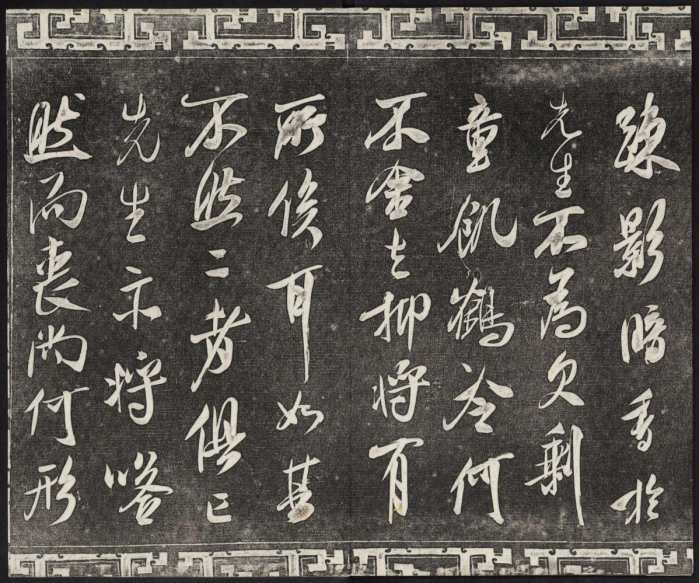 踈影暗香於
先生不為欠剩
童飢鶴冷何
不舍去抑將有
所俟耳如其
不然二者俱亡
先生亦將嗒
然而喪尚何形